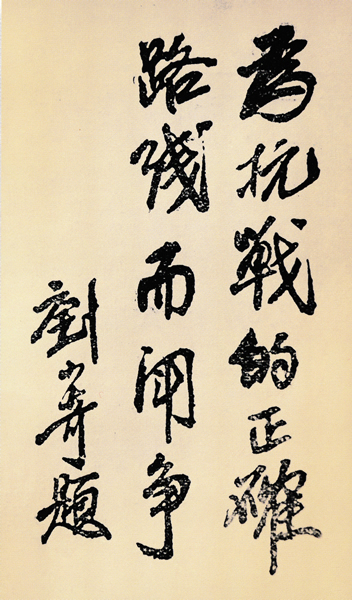 為抗戰的正確
路綫而鬥争
劉少奇題